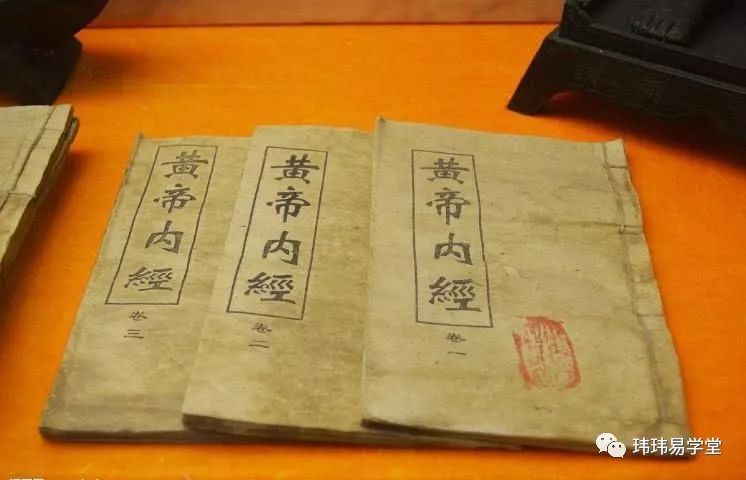 黄帝内經
卷三
黄帝内經
卷二
黄帝内經
卷一
玮玮易学堂